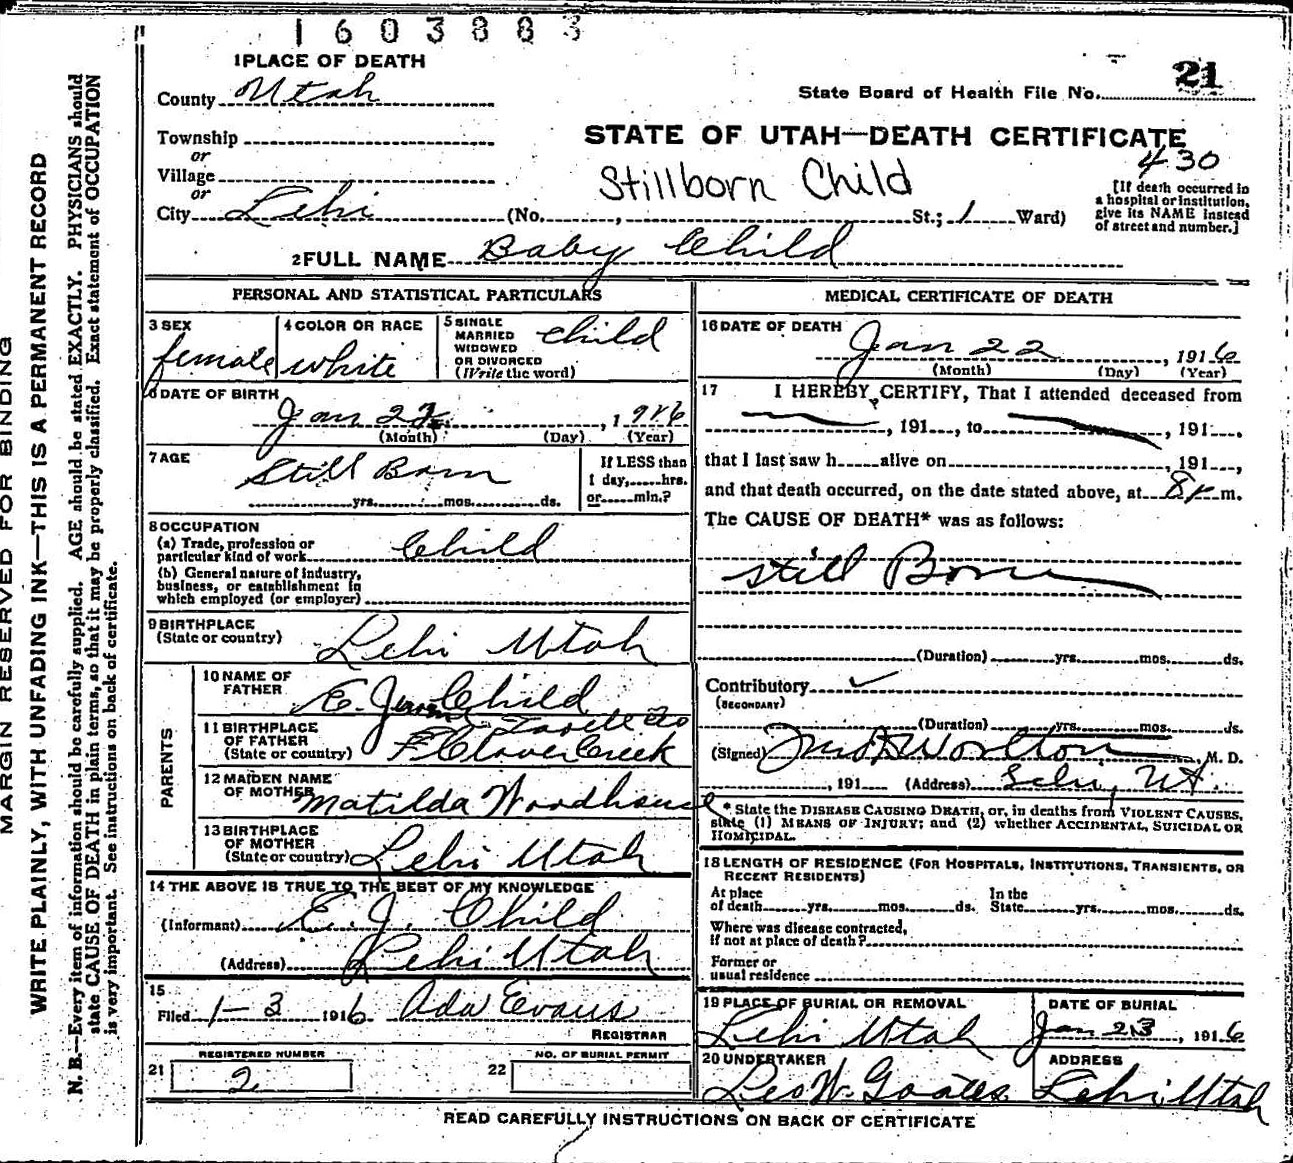 1603883
1 PLACE OF DEATH
21
County Utah
State Board of Health File No.
Township
STATE OF UTAH—DEATH CERTIFICATE
or
430
Village
Stillborn Child
or
[If death occurred in a hospital or institution, give its NAME instead of street and number.]
City Lehi (No. , St.; 1 Ward)
2 FULL NAME Baby Child
PERSONAL AND STATISTICAL PARTICULARS
3 SEX
female
4 COLOR OR RACE
white
5 SINGLE
MARRIED
WIDOWED
OR DIVORCED
(Write the word)
child
6 DATE OF BIRTH
Jan 22, 1916
(Month) (Day) (Year)
7 AGE
Still Born
yrs. mos. ds.
If LESS than
1 day, hrs.
or min.?
8 OCCUPATION
(a) Trade, profession or
particular kind of work Child
(b) General nature of industry,
business, or establishment in
which employed (or employer)
9 BIRTHPLACE
(State or country) Lehi Utah
PARENTS
10 NAME OF
FATHER E. Child
11 BIRTHPLACE
OF FATHER
(State or country) Clover Creek
12 MAIDEN NAME
OF MOTHER Matilda Woodhouse
13 BIRTHPLACE
OF MOTHER
(State or country) Lehi Utah
14 THE ABOVE IS TRUE TO THE BEST OF MY KNOWLEDGE
(Informant) E. J. Child
(Address) Lehi Utah
15
Filed 1-3 1916 Ada Evans
REGISTRAR
REGISTERED NUMBER
21 2
NO. OF BURIAL PERMIT
22
MEDICAL CERTIFICATE OF DEATH
16 DATE OF DEATH
Jan 22, 1916
(Month) (Day) (Year)
17 I HEREBY CERTIFY, That I attended deceased from
, 191 , to , 191 .
that I last saw h alive on , 191 ,
and that death occurred, on the date stated above, at 8 m.
The CAUSE OF DEATH* was as follows:
Still Born
(Duration) yrs. mos. ds.
Contributory
(SECONDARY)
(Duration) yrs. mos. ds.
(Signed) M. D.
, 191 (Address) Lehi, Ut.
* State the DISEASE CAUSING DEATH, or, in deaths from VIOLENT CAUSES,
state (1) MEANS OF INJURY; and (2) whether ACCIDENTAL, SUICIDAL OR
HOMICIDAL.
18 LENGTH OF RESIDENCE (FOR HOSPITALS, INSTITUTIONS, TRANSIENTS, OR
RECENT RESIDENTS)
At place
of death yrs. mos. ds.
In the
State yrs. mos. ds.
Where was disease contracted,
if not at place of death?
Former or
usual residence
19 PLACE OF BURIAL OR REMOVAL
Lehi Utah
DATE OF BURIAL
Jan 23, 1916
20 UNDERTAKER
Leo W. Goates
ADDRESS
Lehi Utah
READ CAREFULLY INSTRUCTIONS ON BACK OF CERTIFICATE
MARGIN RESERVED FOR BINDING
WRITE PLAINLY, WITH UNFADING INK—THIS IS A PERMANENT RECORD
N. B.—Every item of information should be carefully supplied. AGE should be stated EXACTLY. PHYSICIANS should
state CAUSE OF DEATH in plain terms, so that it may be properly classified. Exact statement of OCCUPATION
is very important. See instructions on back of certificate.